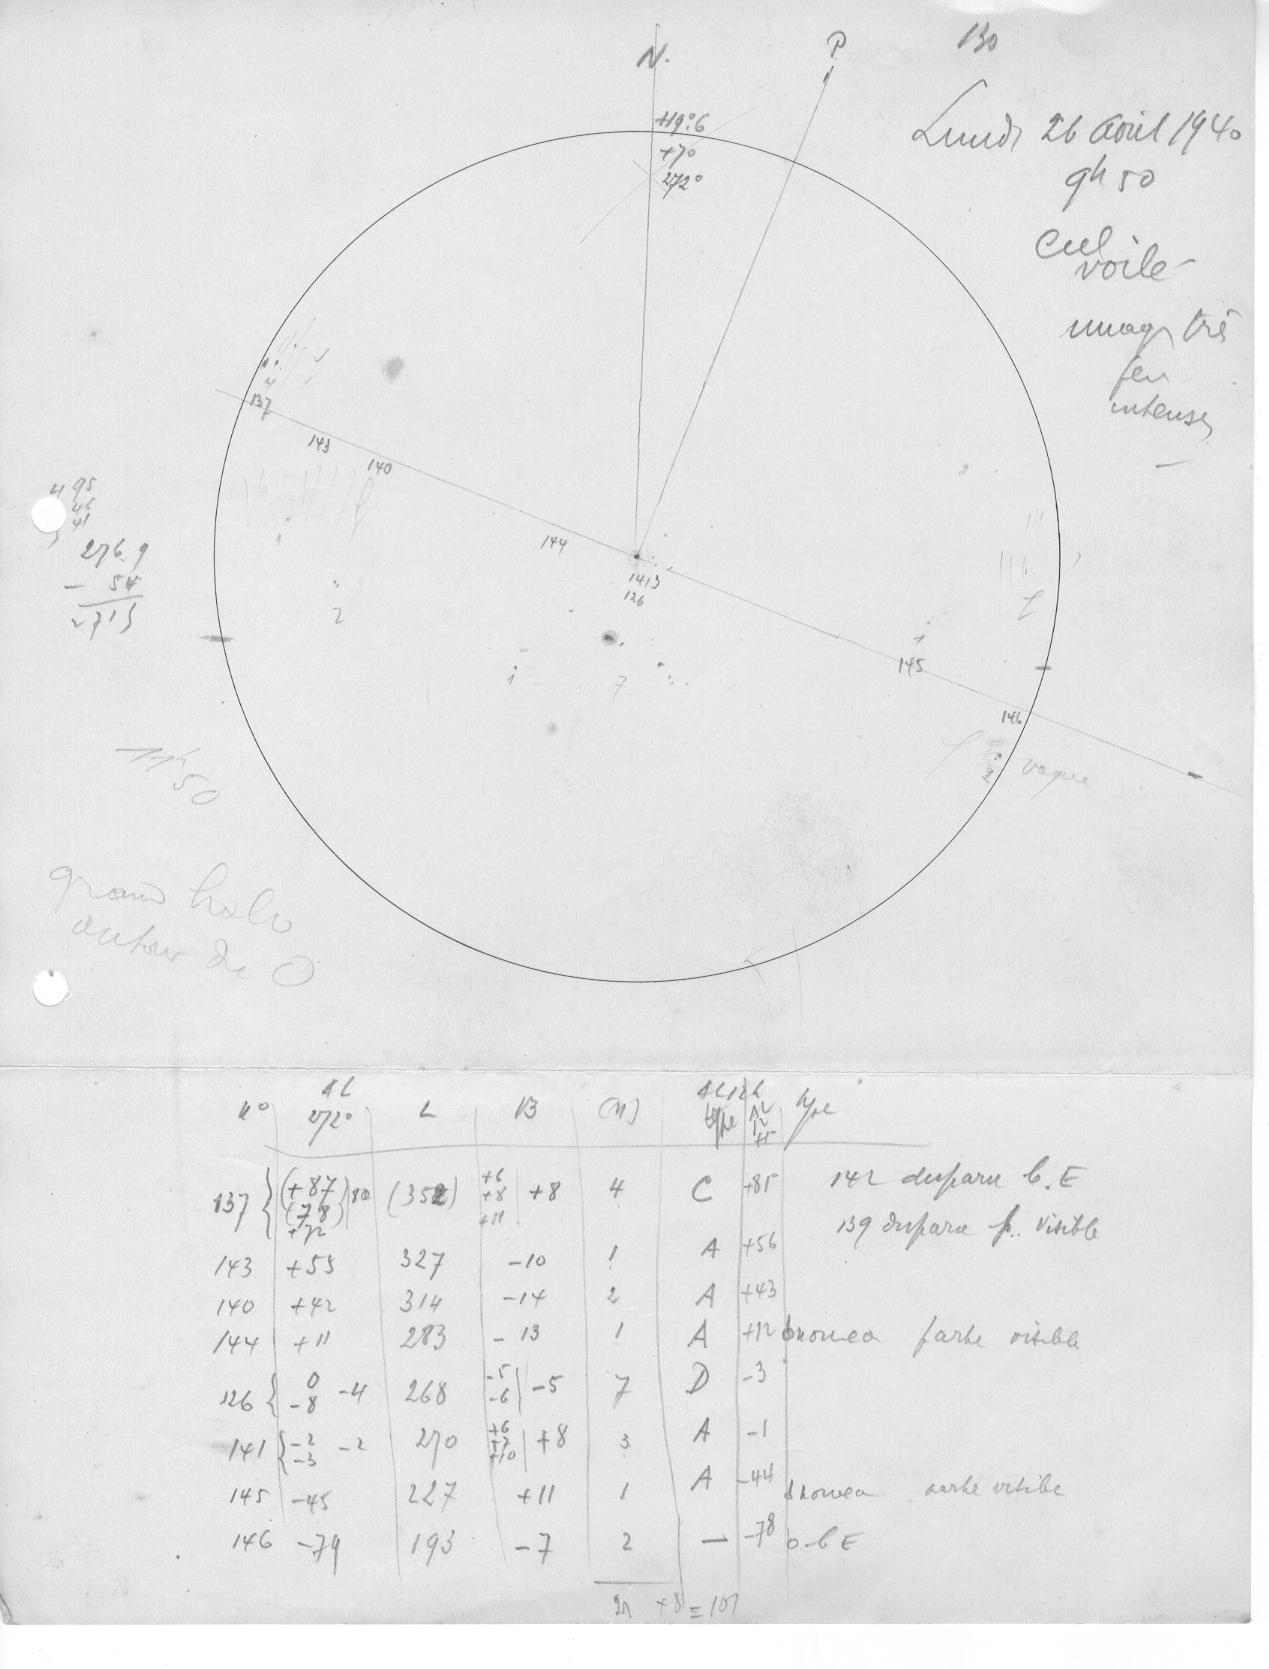 N.
P
130
+19°6
+7°
272°
Lundi 26 Aout 1940
9h 50
Ciel
voile
très
peu
intenses
4
137
143
140
144
1413
126
145
146
1
2
1
7
1
2
vague
495
46
41
276.9
- 54
2715
11h50
grand halo
autour de O
n° 272° L B (N) type type
137 (+87 (+78) +72 80 (352) +6 +8 +11 +8 4 C +85 142 disparu b.E
139 disparu p. visible
143 +55 327 -10 1 A +56
140 +42 314 -14 2 A +43
144 +11 283 -13 1 A +12 nouveau visible
126 0 -8 -4 268 -5 -6 -5 7 D -3
141 -2 -3 -2 270 +6 +7 +10 +8 3 A -1
145 -45 227 +11 1 A -44 nouveau visible
146 -79 193 -7 2 — -78 b E
21 +8 = 101